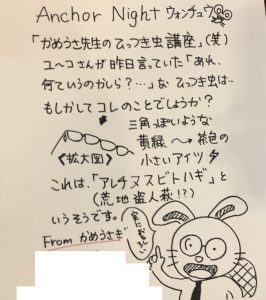 Anchor Night ウォンチュウ
「かめうさ先生のひっつき虫講座」(笑)
ユーコさんが昨日言っていた「あれ、
何ていうのかしら?…」な ひっつき虫は…
もしかしてコレのことでしょうか?
三角っぽいような
黄緑 〜→ 茶色の
小さいアイツ
《拡大図》
これは、「アレチヌスビトハギ」と
(荒地盗人萩!?)
いうそうです。
From かめうさぎ